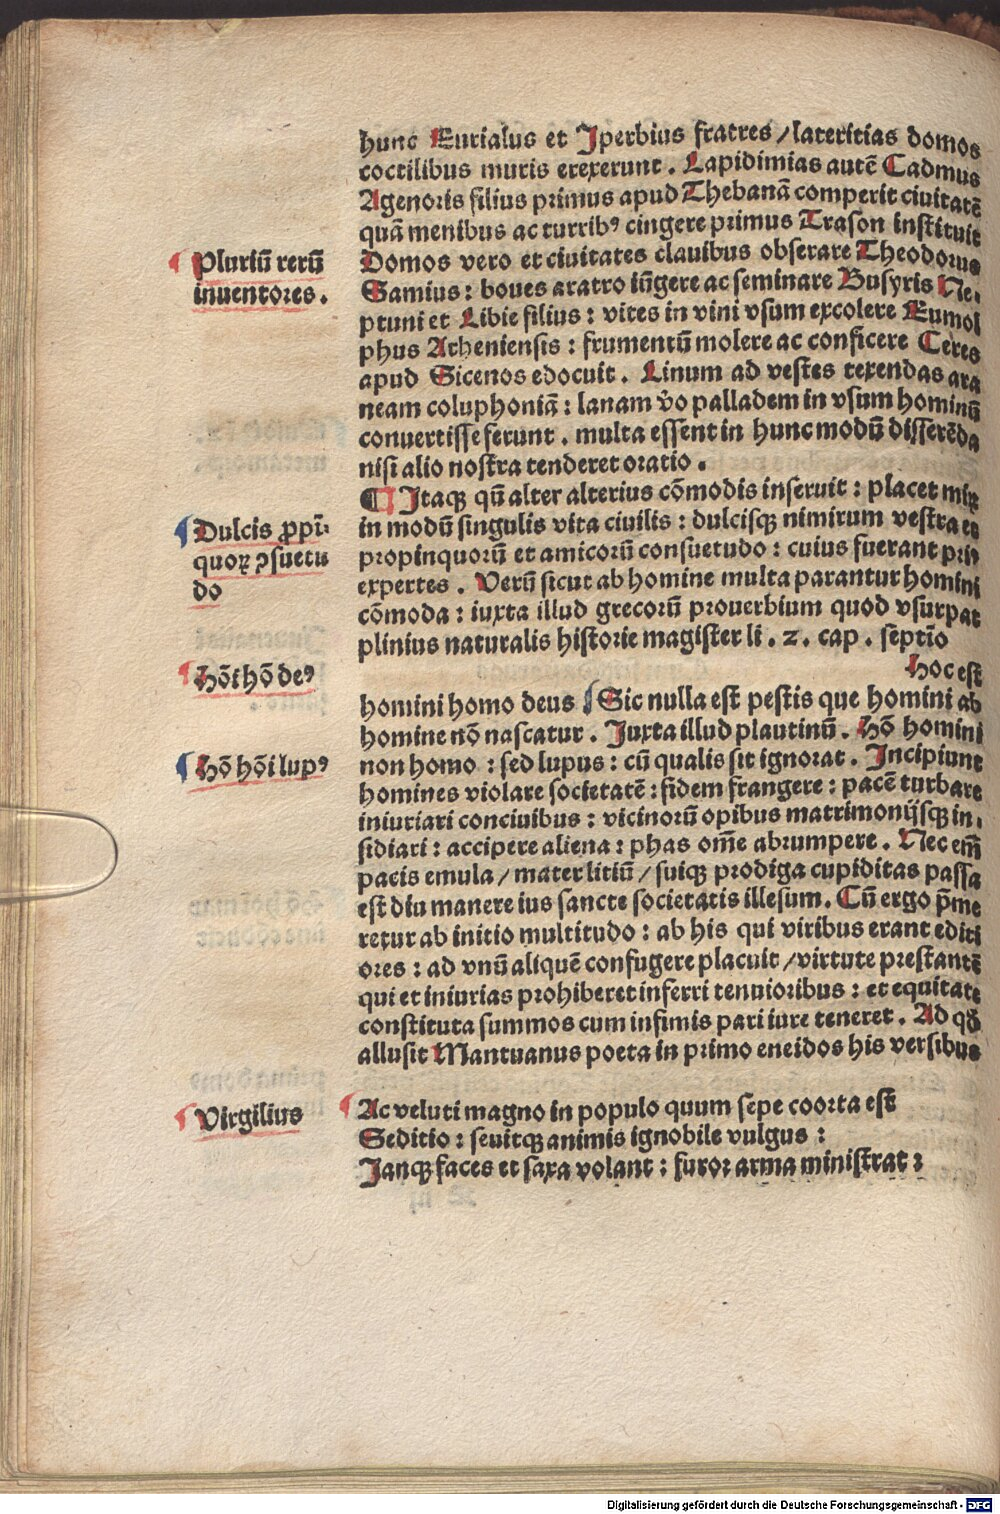 hunc Eurialus et Jperbius fratres / lateritias domos
coctilibus muris erexerunt . Lapidimias autē Cadmus
Agenoris filius primus apud Thebanā comperit ciuitatē
quā menibus ac turribꝰ cingere primus Trason instituit
Pluriū rerū
inuentores .
Domos vero et ciuitates clauibus obserare Theodorus
Samius : boues aratro iūgere ac seminare Busyris Ne⸗
ptuni et Libie filius : vites in vini vsum excolere Eumol
phus Atheniensis : frumentū molere ac conficere Ceres
apud Sicenos edocuit . Linum ad vestes texendas ara
neam coluphoniā : lanam v̄o palladem in vsum hominū
conuertisse ferunt . multa essent in hunc modū disserēda
nisi alio nostra tenderet oratio .
¶ Jtaqꝫ qū alter alterius cōmodis inseruit : placet mix
Dulcis ꝓpī⸗
quoꝝ ꝯsuetu
do
in modū singulis vita ciuilis : dulcisqꝫ nimirum vestra et
propinquorū et amicorū consuetudo : cuius fuerant prī⸗
expertes . Verū sicut ab homine multa parantur homini
cōmoda : iuxta illud grecorū prouerbium quod vsurpat
plinius naturalis historie magister li . 2 . cap . septīo
Hōī hō deꝰ
hoc est
homini homo deus Sic nulla est pestis que homini ab
homine nō nascatur . Juxta illud plautinū . Hō homini
Hō hōi lupꝰ
non homo : sed lupus : cū qualis sit ignorat . Jncipiunt
homines violare societatē : fidem frangere : pacē turbare
iniuriari conciuibus : vicinorū opibus matrimonijsqꝫ in⸗
sidiari : accipere aliena : phas om̄e abrumpere . Nec em̄
pacis emula / mater litiū / suiqꝫ prodiga cupiditas passa
est diu manere ius sancte societatis illesum . Cū ergo p̄me
retur ab initio multitudo : ab his qui viribus erant editi
ores : ad vnū aliquē confugere placuit / virtute prestantē
qui et iniurias prohiberet inferri tenuioribus : et equitate
constituta summos cum infimis pari iure teneret . Ad qd̄
allusit Mantuanus poeta in primo eneidos his versibus
Virgilius
Ac veluti magno in populo quum sepe coorta est
Seditio : seuitqꝫ animis ignobile vulgus :
Janqꝫ faces et saxa volant : furor arma ministrat :
Digitalisierung gefördert durch die Deutsche Forschungsgemeinschaft - DFG